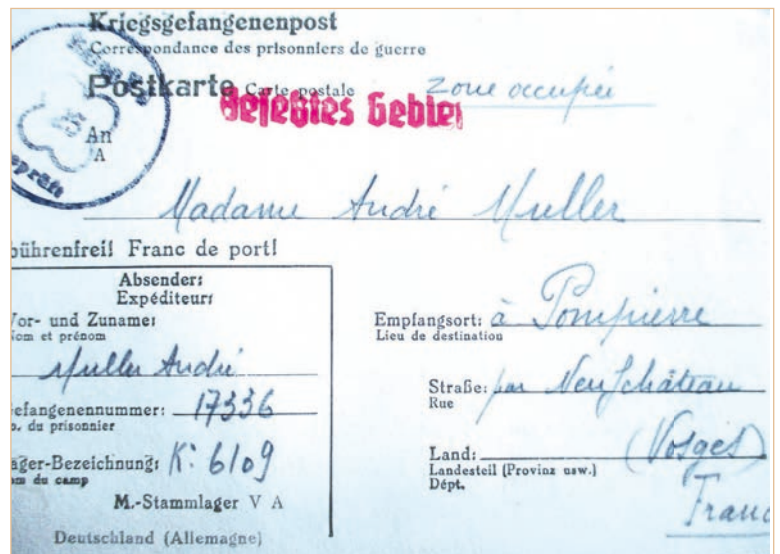 Kriegsgefangenenpost
Correspondance des prisonniers de guerre
Postkarte Carte postale
Zone occupée
Besetztes Gebiet
25
Geprüft
An
A
Madame André Muller
bührenfrei! Franc de port!
Absender:
Expéditeur:
Vor- und Zuname:
Nom et prénom
Muller André
efangenennummer: 17336
o. du prisonnier
ager-Bezeichnung: K: 6109
om du camp
M.-Stammlager V A
Deutschland (Allemagne)
Empfangsort: à Pompierre
Lieu de destination
Straße: par Neufchâteau
Rue
Land: (Vosges)
Landesteil (Provinz usw.)
Dépt.
Franc